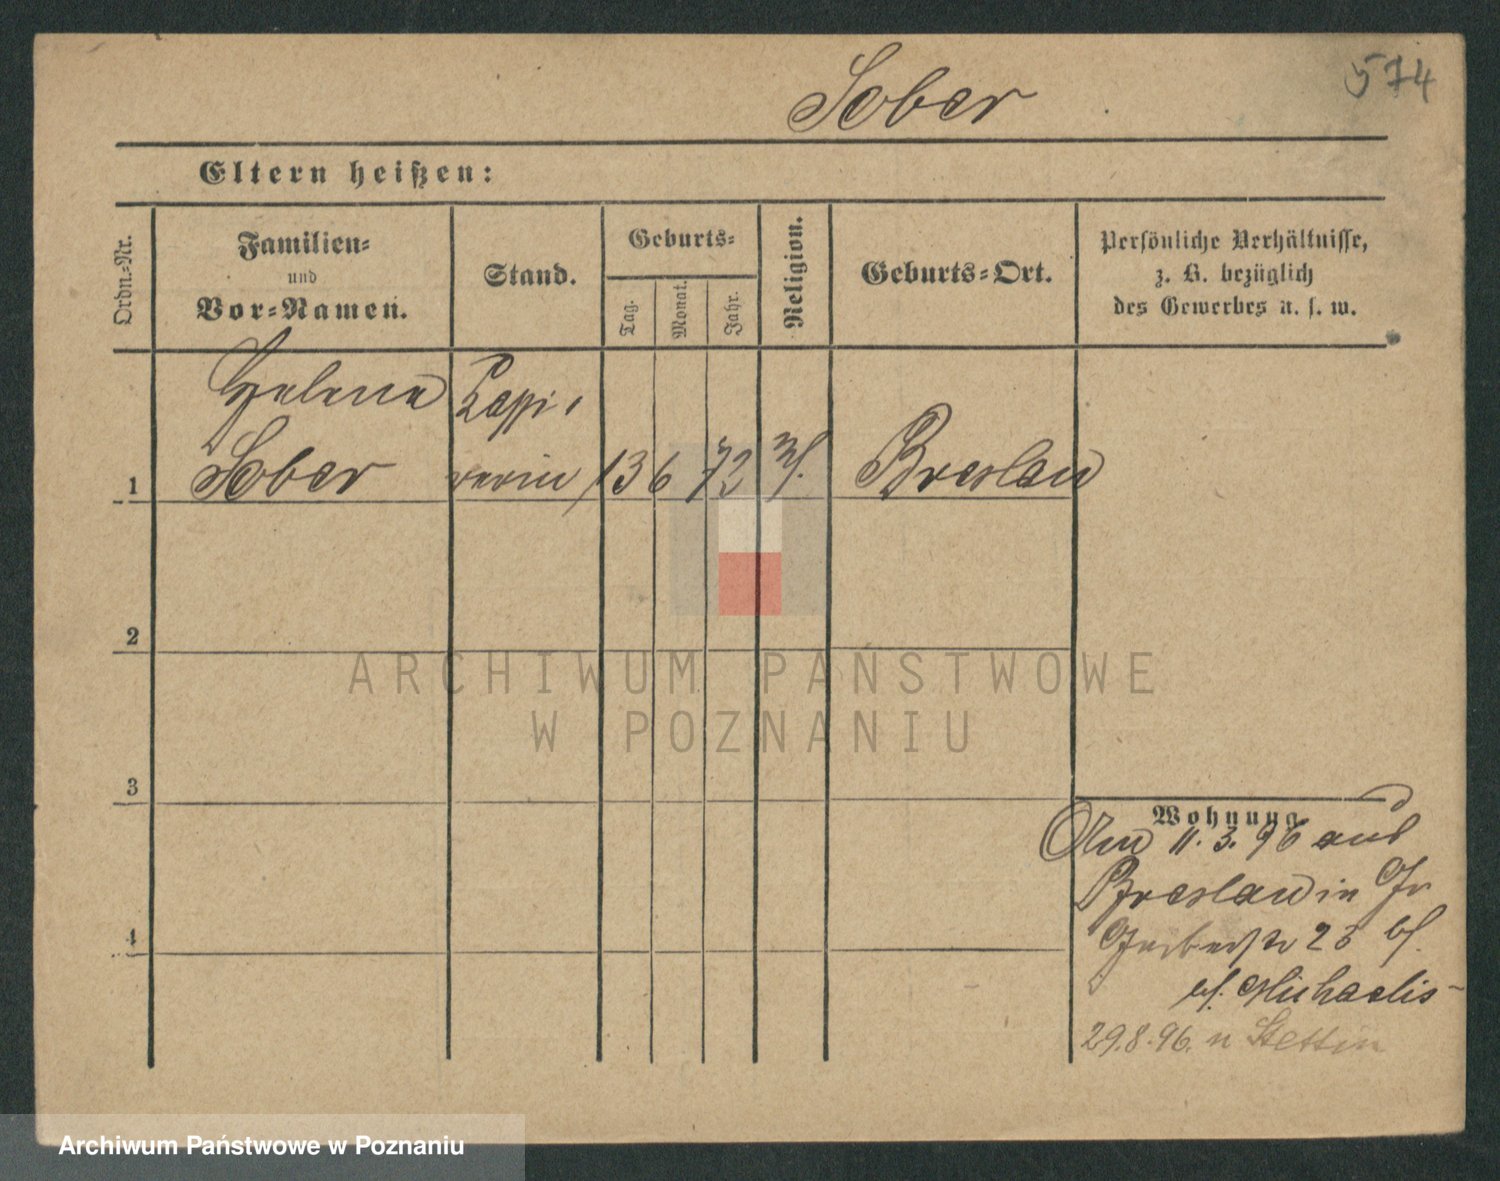 Sober
574
Eltern heißen:
Ordn.-Nr.
Familien-
und
Vor-Namen.
Stand.
Geburts-
Tag.
Monat.
Jahr.
Religion.
Geburts-Ort.
Persönliche Verhältnisse,
z. B. bezüglich
des Gewerbes u. s. w.
Helene
Sober
Kassi-
rerin
1
13
6
72
Breslau
2
3
4
Wohnung
Am 11.3.96 aus
Breslau in Gr
Gerberstr 23
Michaelis
29.8.96. n Stettin
ARCHIWUM PAŃSTWOWE
W POZNANIU
Archiwum Państwowe w Poznaniu